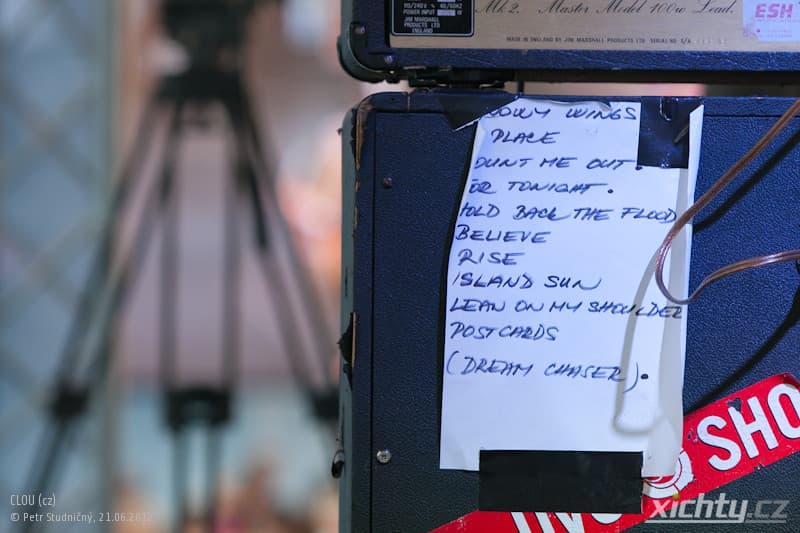 110/240V ~ 40/60HZ
POWER INPUT W
JIM MARSHALL
PRODUCTS LTD
ENGLAND
Mk2. Master Model 100w Lead.
MADE IN ENGLAND BY JIM MARSHALL PRODUCTS LTD SERIAL NO S/A
ESH
WINGS
PLACE
OUNT ME OUT.
OR TONIGHT.
HOLD BACK THE FLOOD
BELIEVE
RISE
ISLAND SUN
LEAN ON MY SHOULDER
POSTCARDS
(DREAM CHASER).
SHO
CLOU (cz)
© Petr Studničný, 21.06.2012
xichty.cz